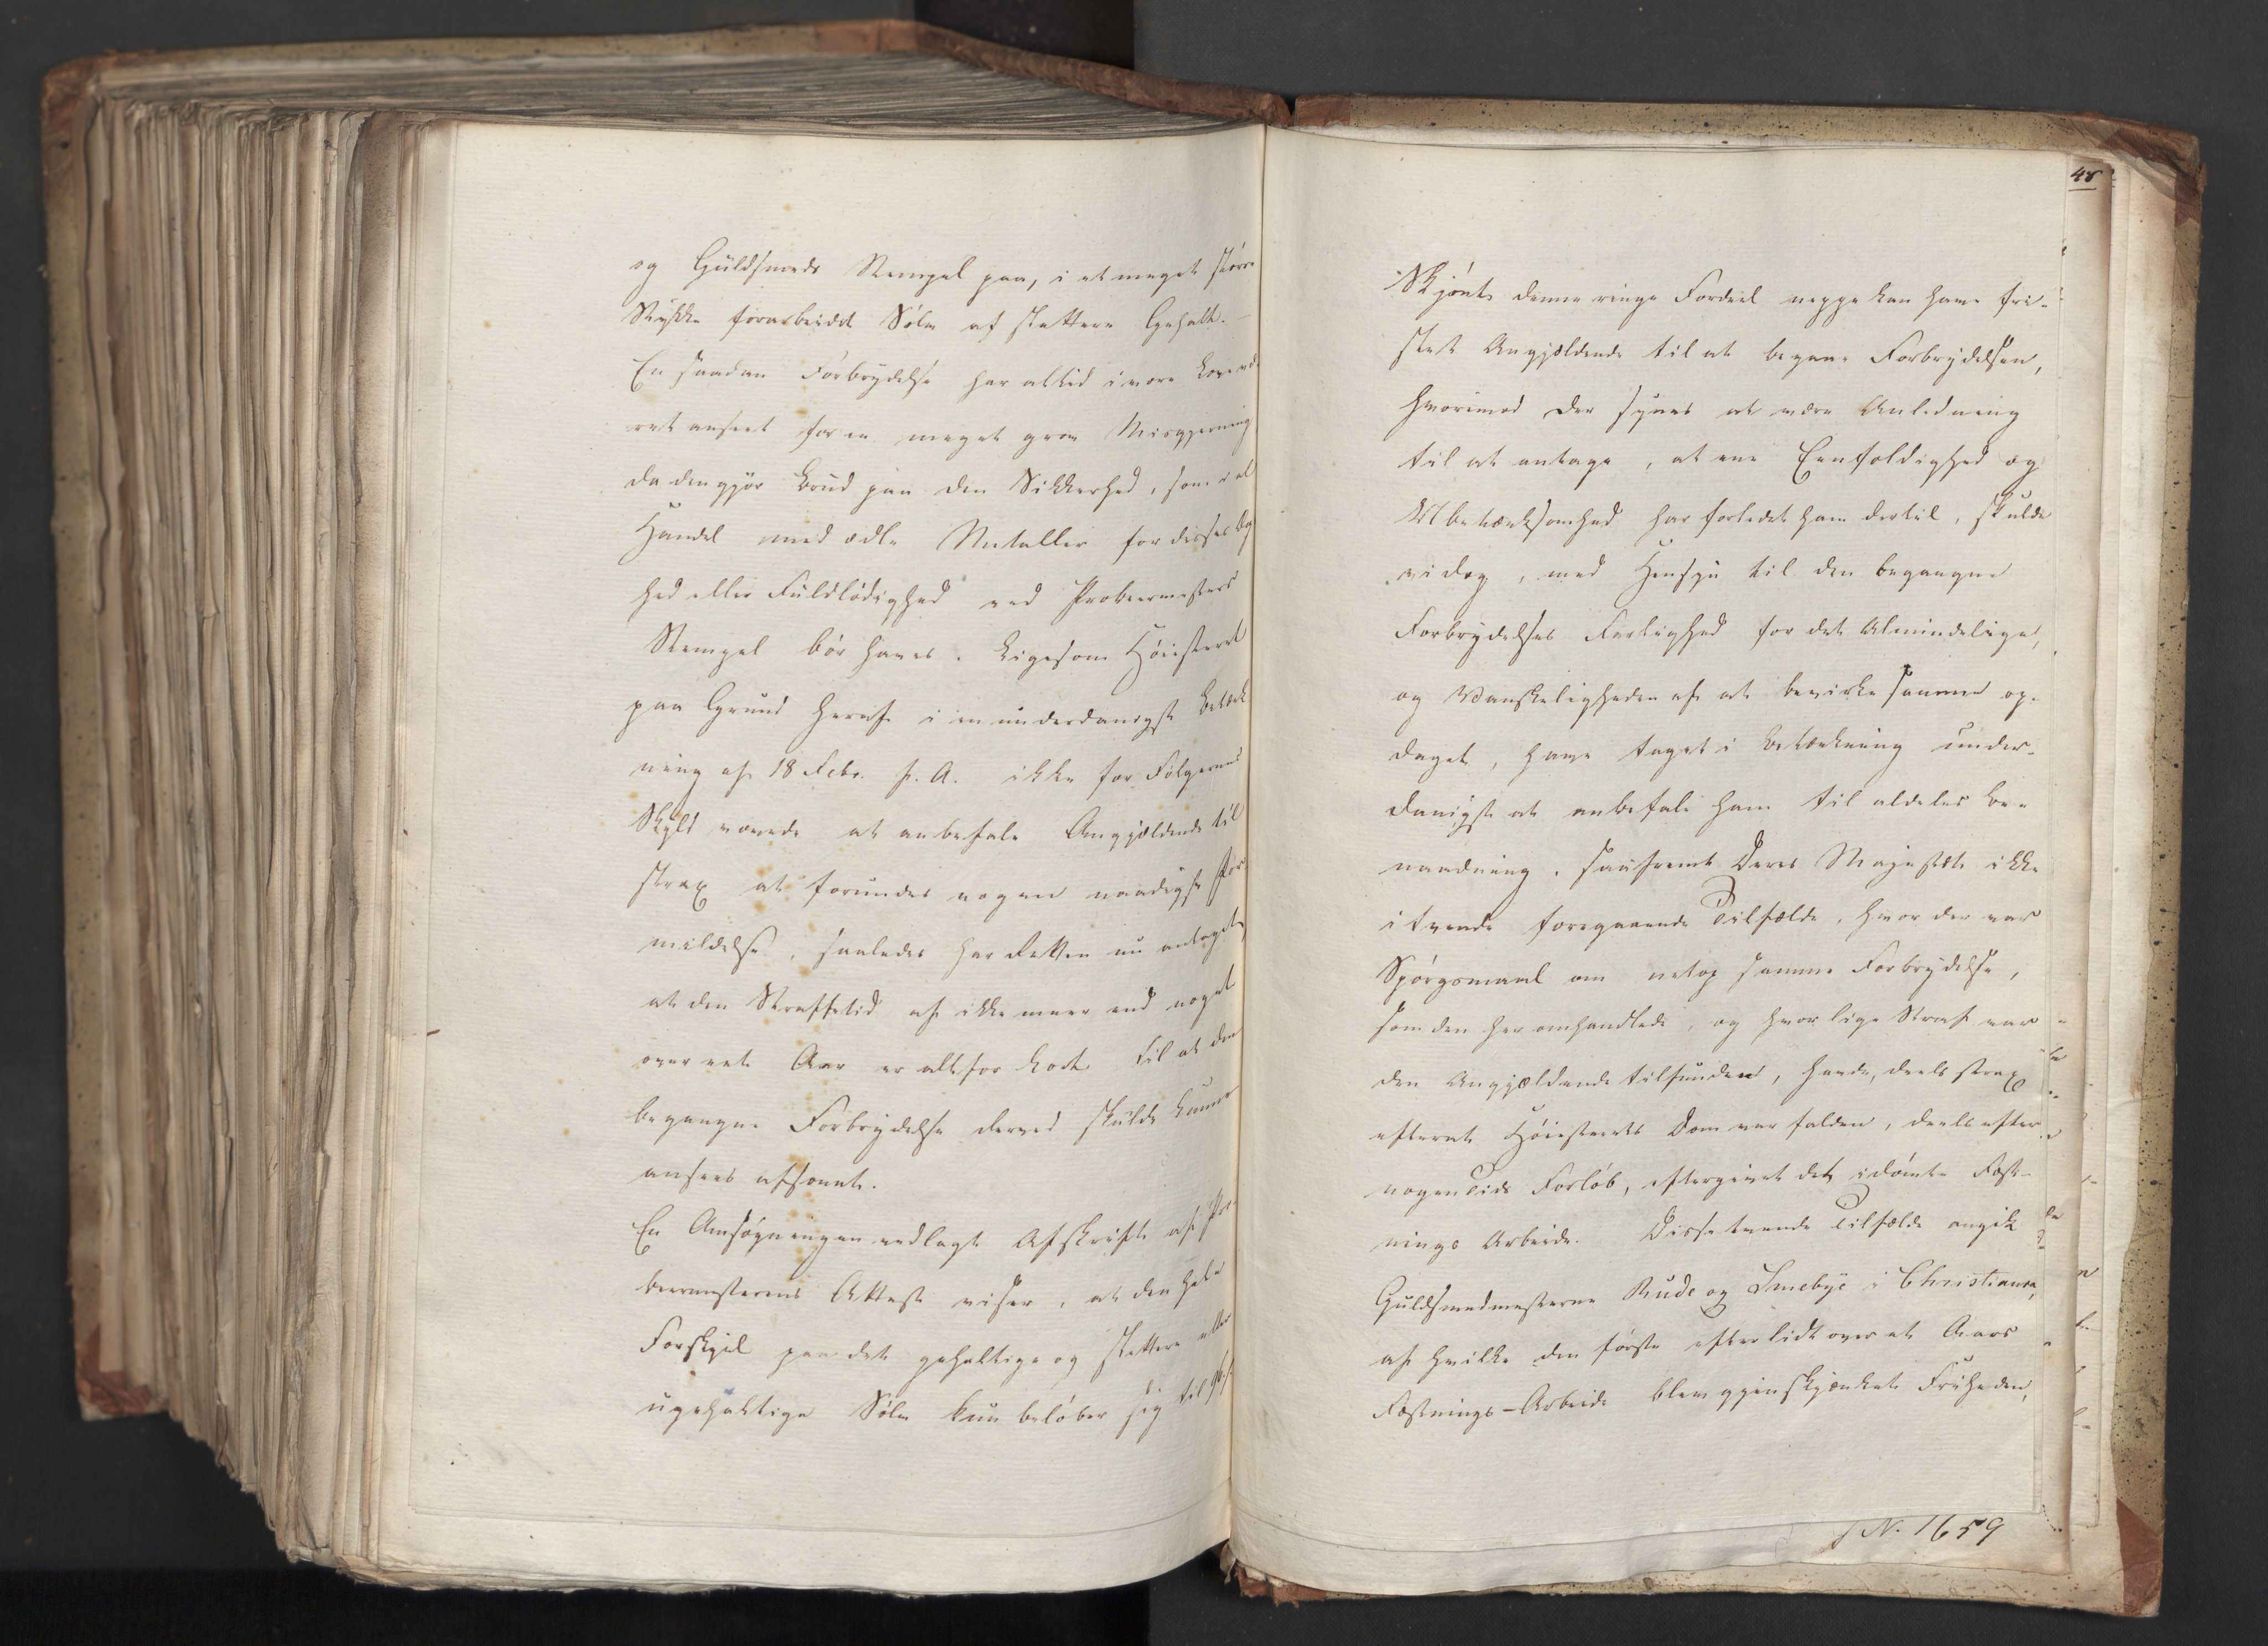 og Guldsmeds Stempel paa, i et meget større
Stykke forarbeidet Sølv af slettere Gehalt.
En saadan Forbrydelse har altid i vore Love været
anseet for en meget grov Misgjerning
da den gjør Brud paa den Sikkerhed, som ved
Handel med ædle Metaller for disses Ægt-
hed eller Fuldlødighed ved Probeermesters
Stempel bør haves. Ligesom Høiesteret
paa Grund heraf i en underdanigst Betænk-
ning af 18 Febr. f. A. ikke for Følgernes
Skyld vovede at anbefale Angjældende til
strax at forundes nogen naadigst For-
mildelse, saaledes har Retten nu antaget,
at den Straffetid af ikke meer end noget
over eet Aar er alt for kort til at den
begangne Forbrydelse derved skulde kunne
ansees afsonet.
En Ansøgningen vedlagt Afskrift af Pro-
beermesterens Attest viser, at den hele
Forskjel paa det gehaltige og slettere eller
ugehaltige Sølv kun beløber sig til 96 s
48
Skjønt denne ringe Fordeel neppe kan have fri-
stet Angjældende til at begaae Forbrydelsen,
hvorimod der synes at være Anledning
til at antage, at ene Eenfoldighed og
Ubetænksomhed har forledet ham dertil, skulde
vi dog, med Hensyn til den begangne
Forbrydelses Farlighed for det Almindelige,
og Vanskeligheden af at bevirke samme op-
daget, have taget i Betænkning under-
danigst at anbefale ham til aldeles Be-
naadning, saafremt Deres Majestæt ikke
i tvende foregaaende Tilfælde, hvor der var
Spørgsmaal om netop samme Forbrydelse,
som den her omhandlede, og hvor lige Straf var
den Angjældende tilfunden, havde, deels strax
efterat Høiesterets Dom var falden, deels efter
nogen Tids Forløb, eftergivet det idømte Fæst-
nings Arbeide. Disse tvende Tilfælde angik
Guldsmedmesterne Rude og Smebye i Christiania,
af hvilke den første efter lidt over et Aars
Fæstnings-Arbeide blev gjenskjænket Friheden,
N. 1659